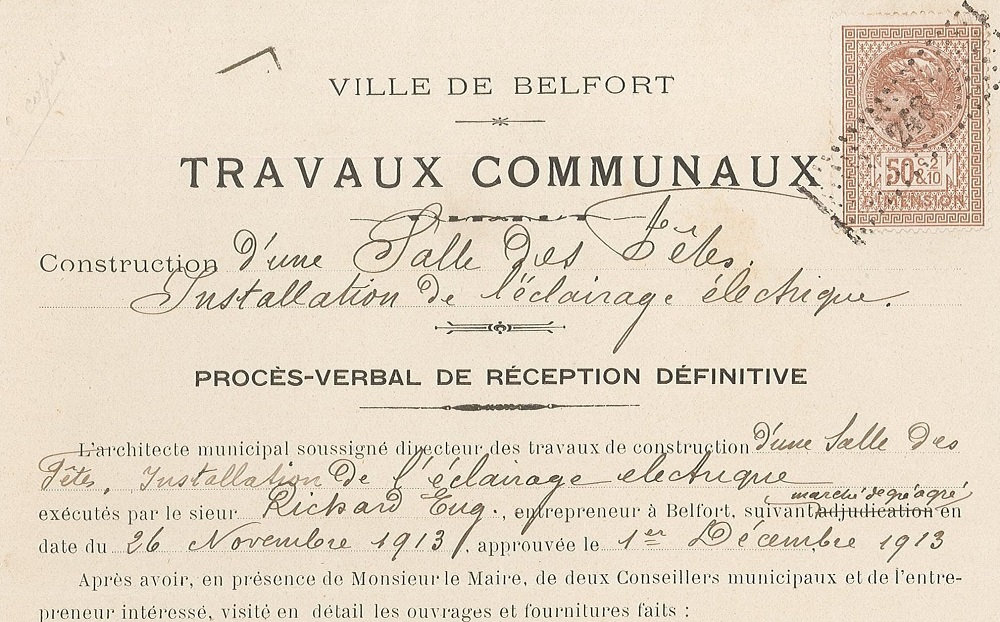 VILLE DE BELFORT
TRAVAUX COMMUNAUX
Construction d'une Salle des Fêtes.
Installation de l'éclairage électrique.
PROCÈS-VERBAL DE RÉCEPTION DÉFINITIVE
L'architecte municipal soussigné directeur des travaux de construction d'une Salle des
Fêtes, Installation de l'éclairage electrique
marché de gré à gré
exécutés par le sieur Rickard Eug., entrepreneur à Belfort, suivant adjudication en
date du 26 Novembre 1913, approuvée le 1er Décembre 1913
Après avoir, en présence de Monsieur le Maire, de deux Conseillers municipaux et de l'entre-
preneur intéressé, visité en détail les ouvrages et fournitures faits :
248
50 & 2/10
DIMENSION